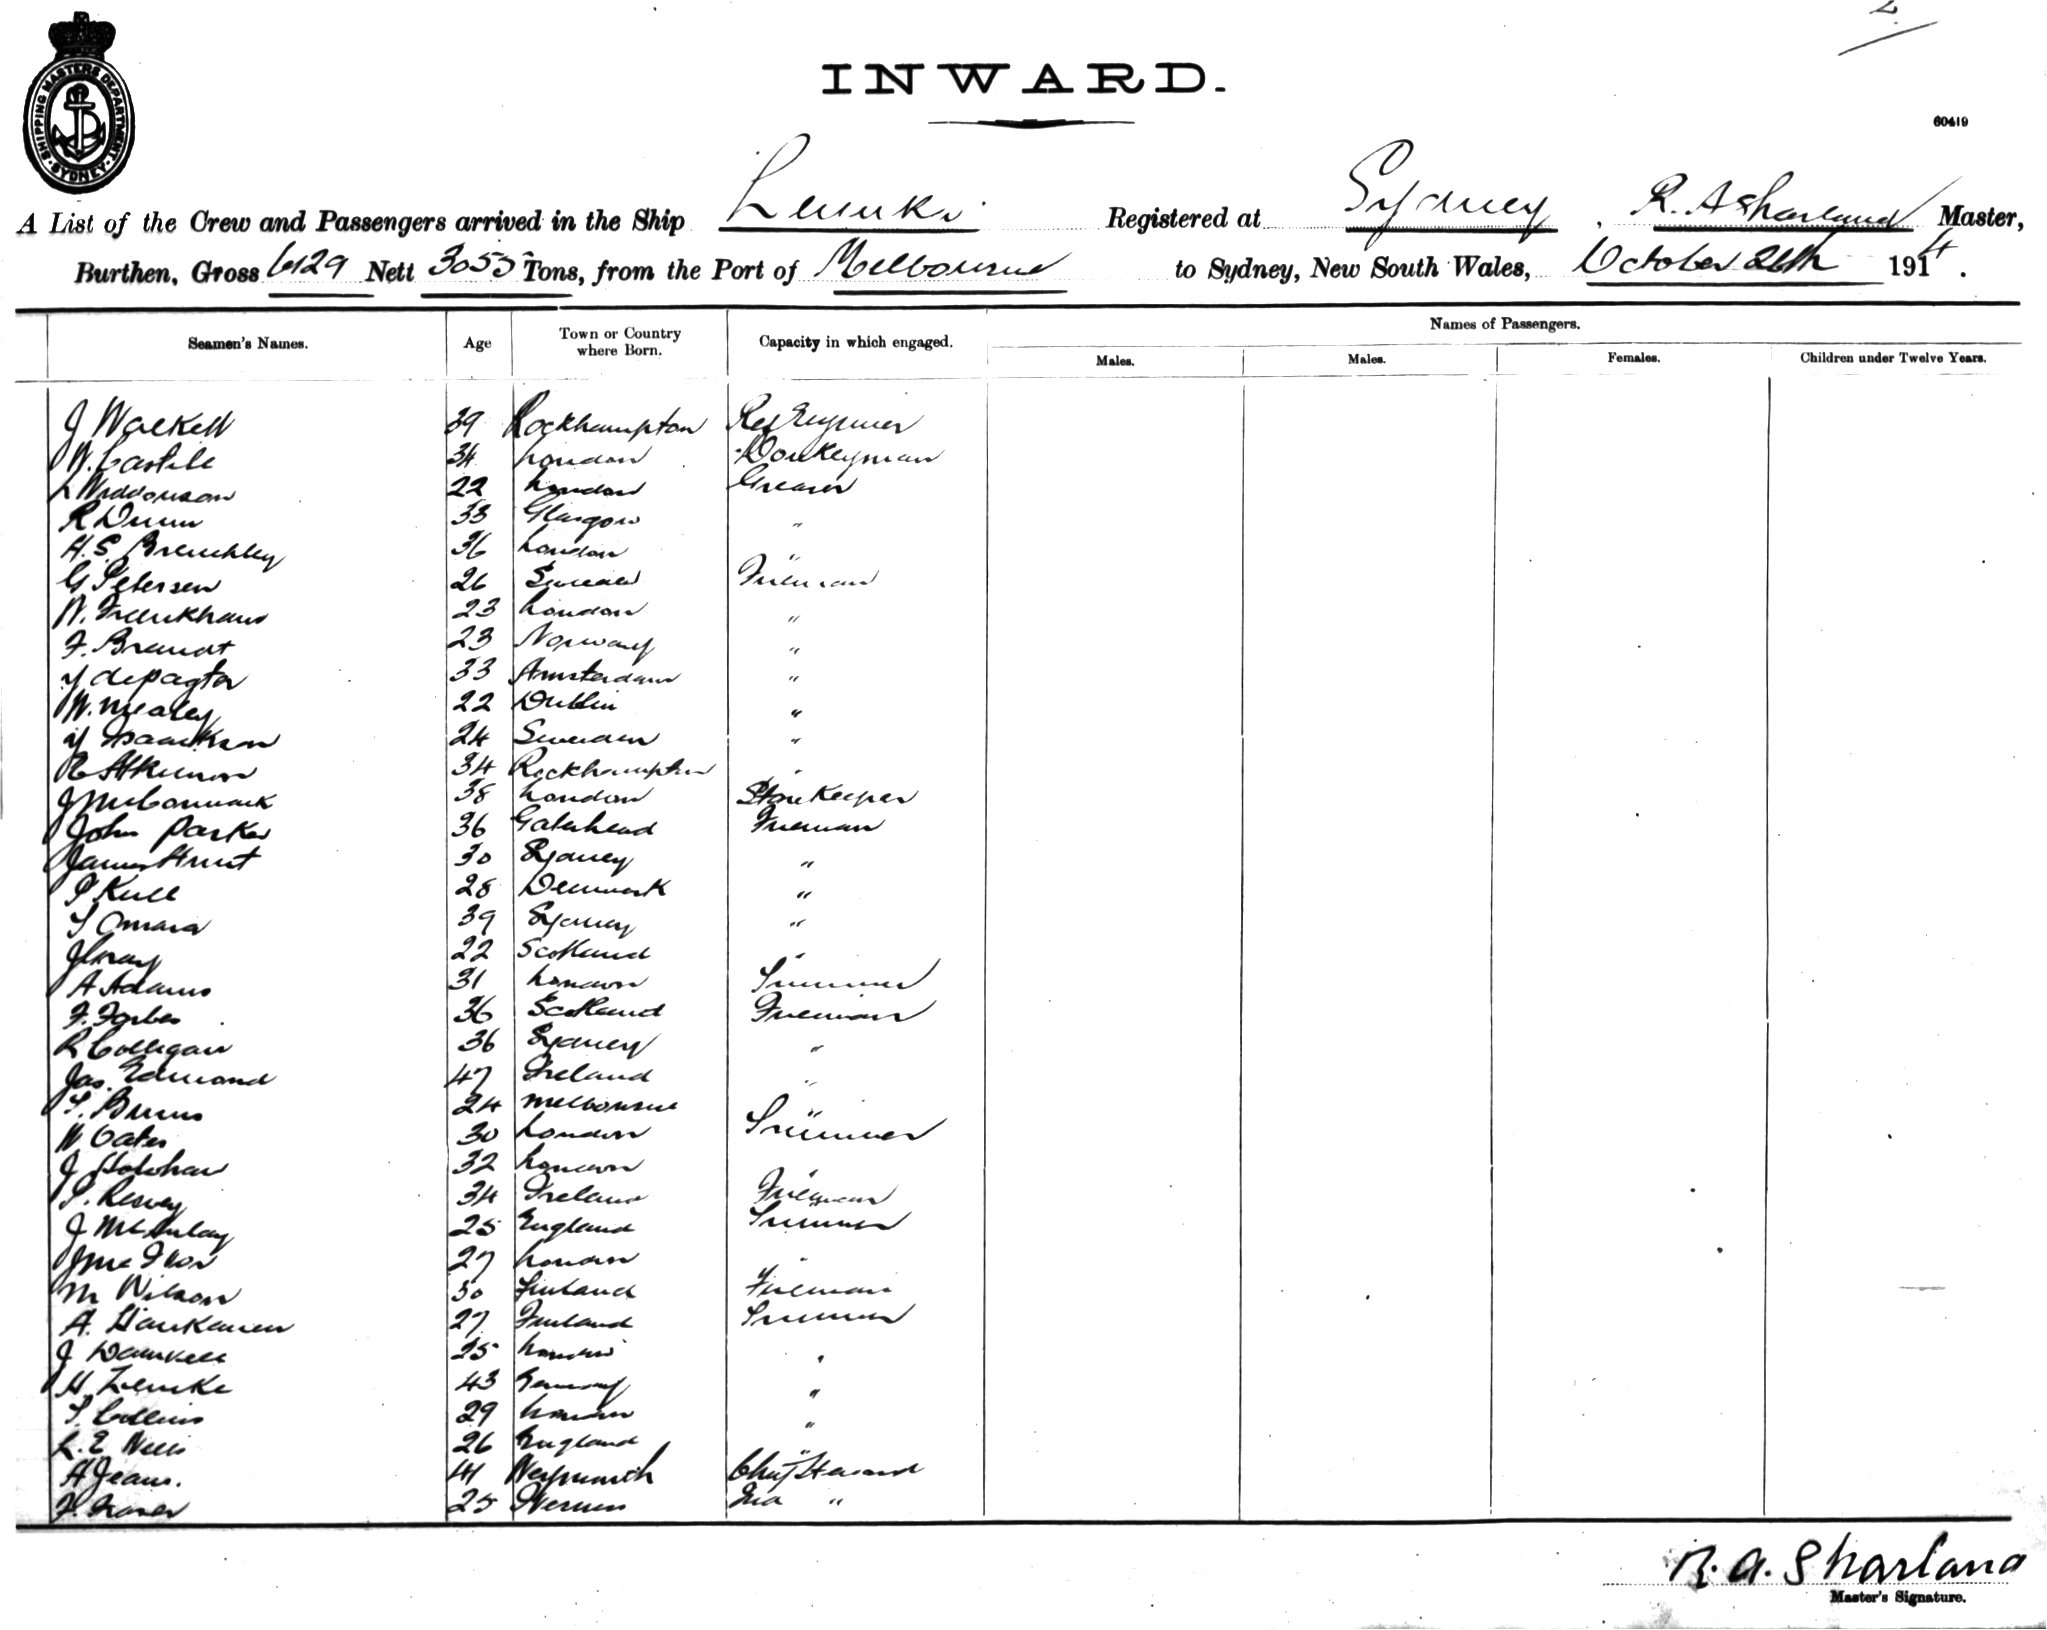 2
INWARD.
SHIPPING MASTERS DEPARTMENT SYDNEY
60419
A List of the Crew and Passengers arrived in the Ship Registered at Sydney, R. A Sharland Master,
Burthen, Gross 6129 Nett 3055 Tons, from the Port of Melbourne to Sydney, New South Wales, October 26th 1914.
Seamen's Names. Age Town or Country where Born. Capacity in which engaged. Names of Passengers.
Males. Males. Females. Children under Twelve Years.
J 39 Rockhampton
W. Castile 34 London Donkeyman
L Widdowson 22 London Greaser
R Dunn 33 Glasgow "
H. S. Brenchley 36 London "
G Petersen 26 Sweden Fireman
W. Frankhaus 23 London "
F. Brandt 23 Norway "
J depagter 33 Amsterdam "
W. Mealey 22 Dublin "
J Isaackson 24 Sweden "
Atkinson 34 Rockhampton "
J McCormack 38 London Storekeeper
John Parker 36 Gateshead Fireman
James Hunt 30 Sydney "
P Kull 28 Denmark "
T Omara 39 Sydney "
J Gray 22 Scotland "
A Adams 31 London Trimmer
F. Forbes 36 Scotland Fireman
R Colligan 36 Sydney "
Jas. Edmond 47 Ireland "
T. Burns 24 Melbourne "
W Oates 30 London Trimmer
J Holohan 32 London "
P. 34 Ireland Fireman
J McAulay 25 England Trimmer
J Mc Ivor 27 London "
M Nilson 30 Finland Fireman
A. Haukanen 27 Finland Trimmer
J 25 London "
H. Lemke 43 Germany "
T. Collins 29 London "
L. E Wells 26 England "
H Jeans. 41 Weymouth Chief Steward
F. Fraser 25 2nd "
R. A. Sharland
Master's Signature.